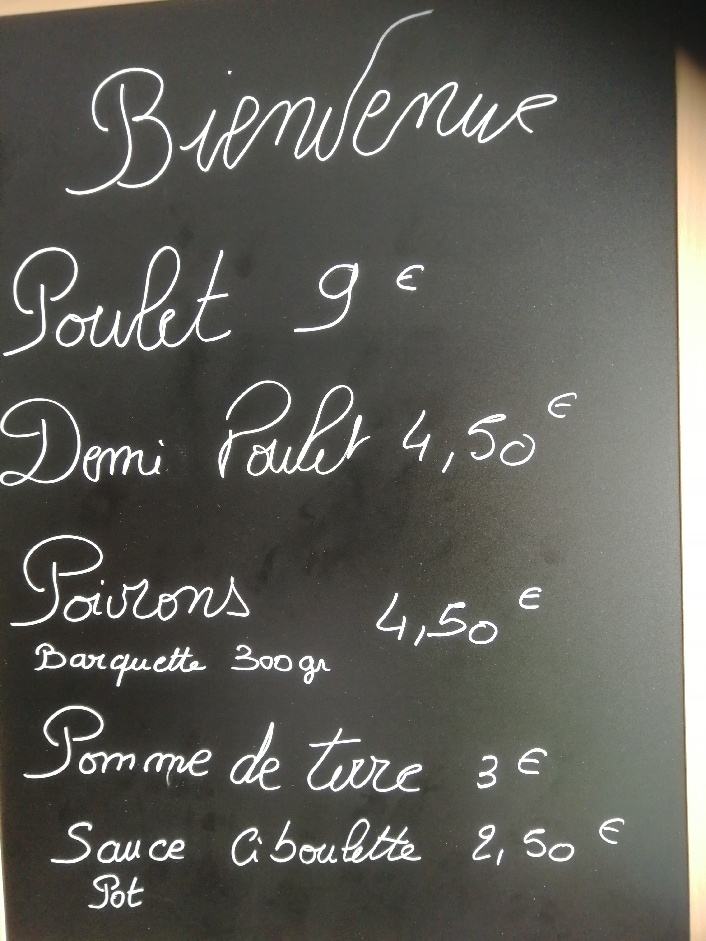 Bienvenue
Poulet 9 €
Demi Poulet 4,50 €
Poivrons 4,50 €
Barquette 300gr
Pomme de terre 3 €
Sauce Ciboulette 2,50 €
Pot